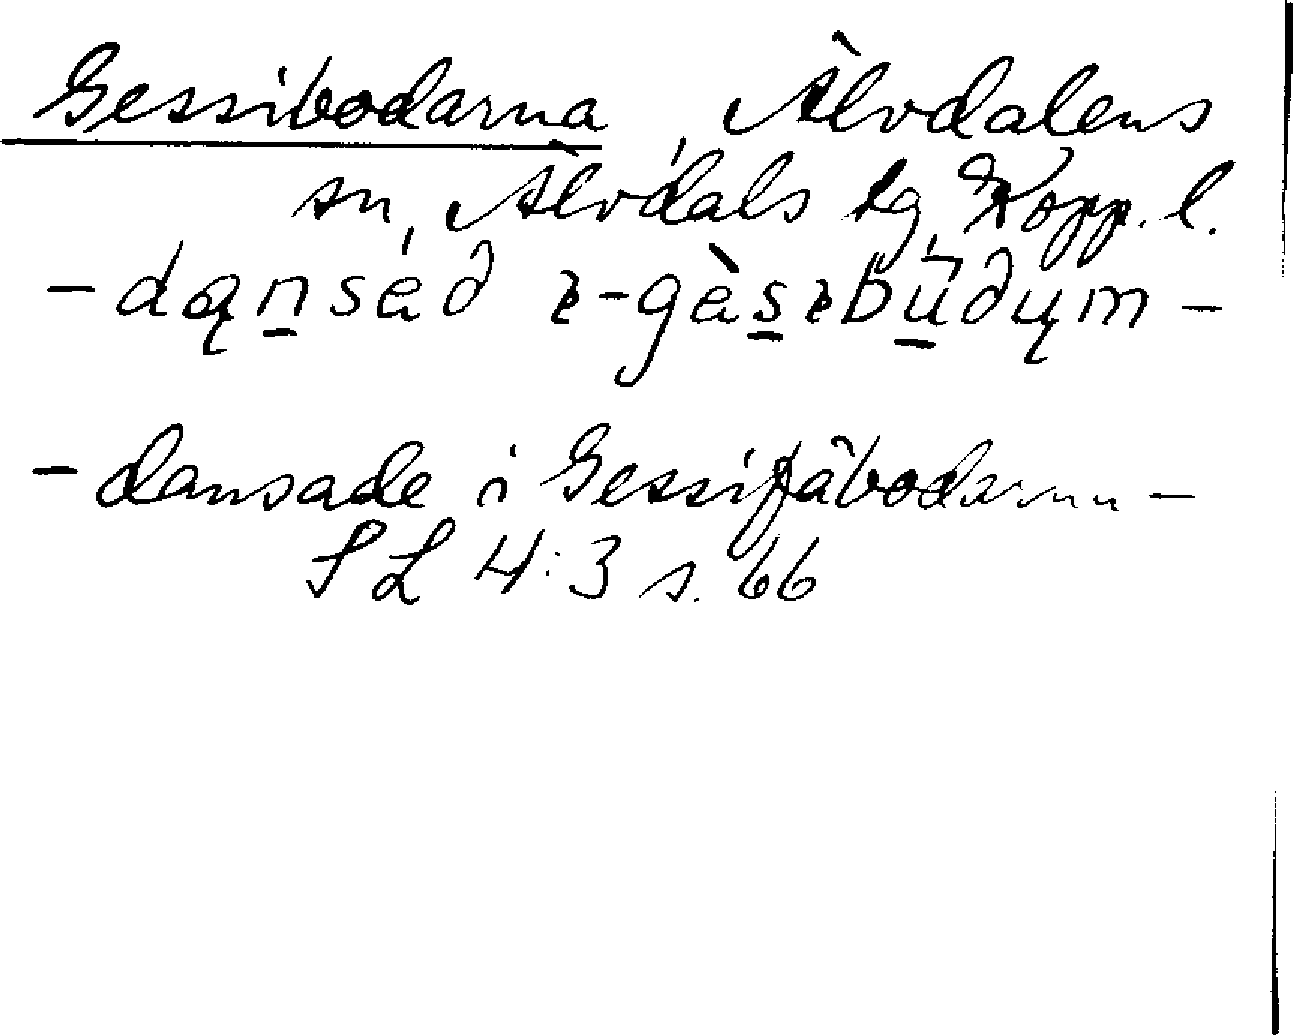 Gessibodarna, Älvdalens
sn, Älvdals tg Kopp. l.
- dąn̲séð ɪ-gès̲ɪbü̲ðųm -
- dansade i Gessifäbodarna -
SL 4:3 s. 66